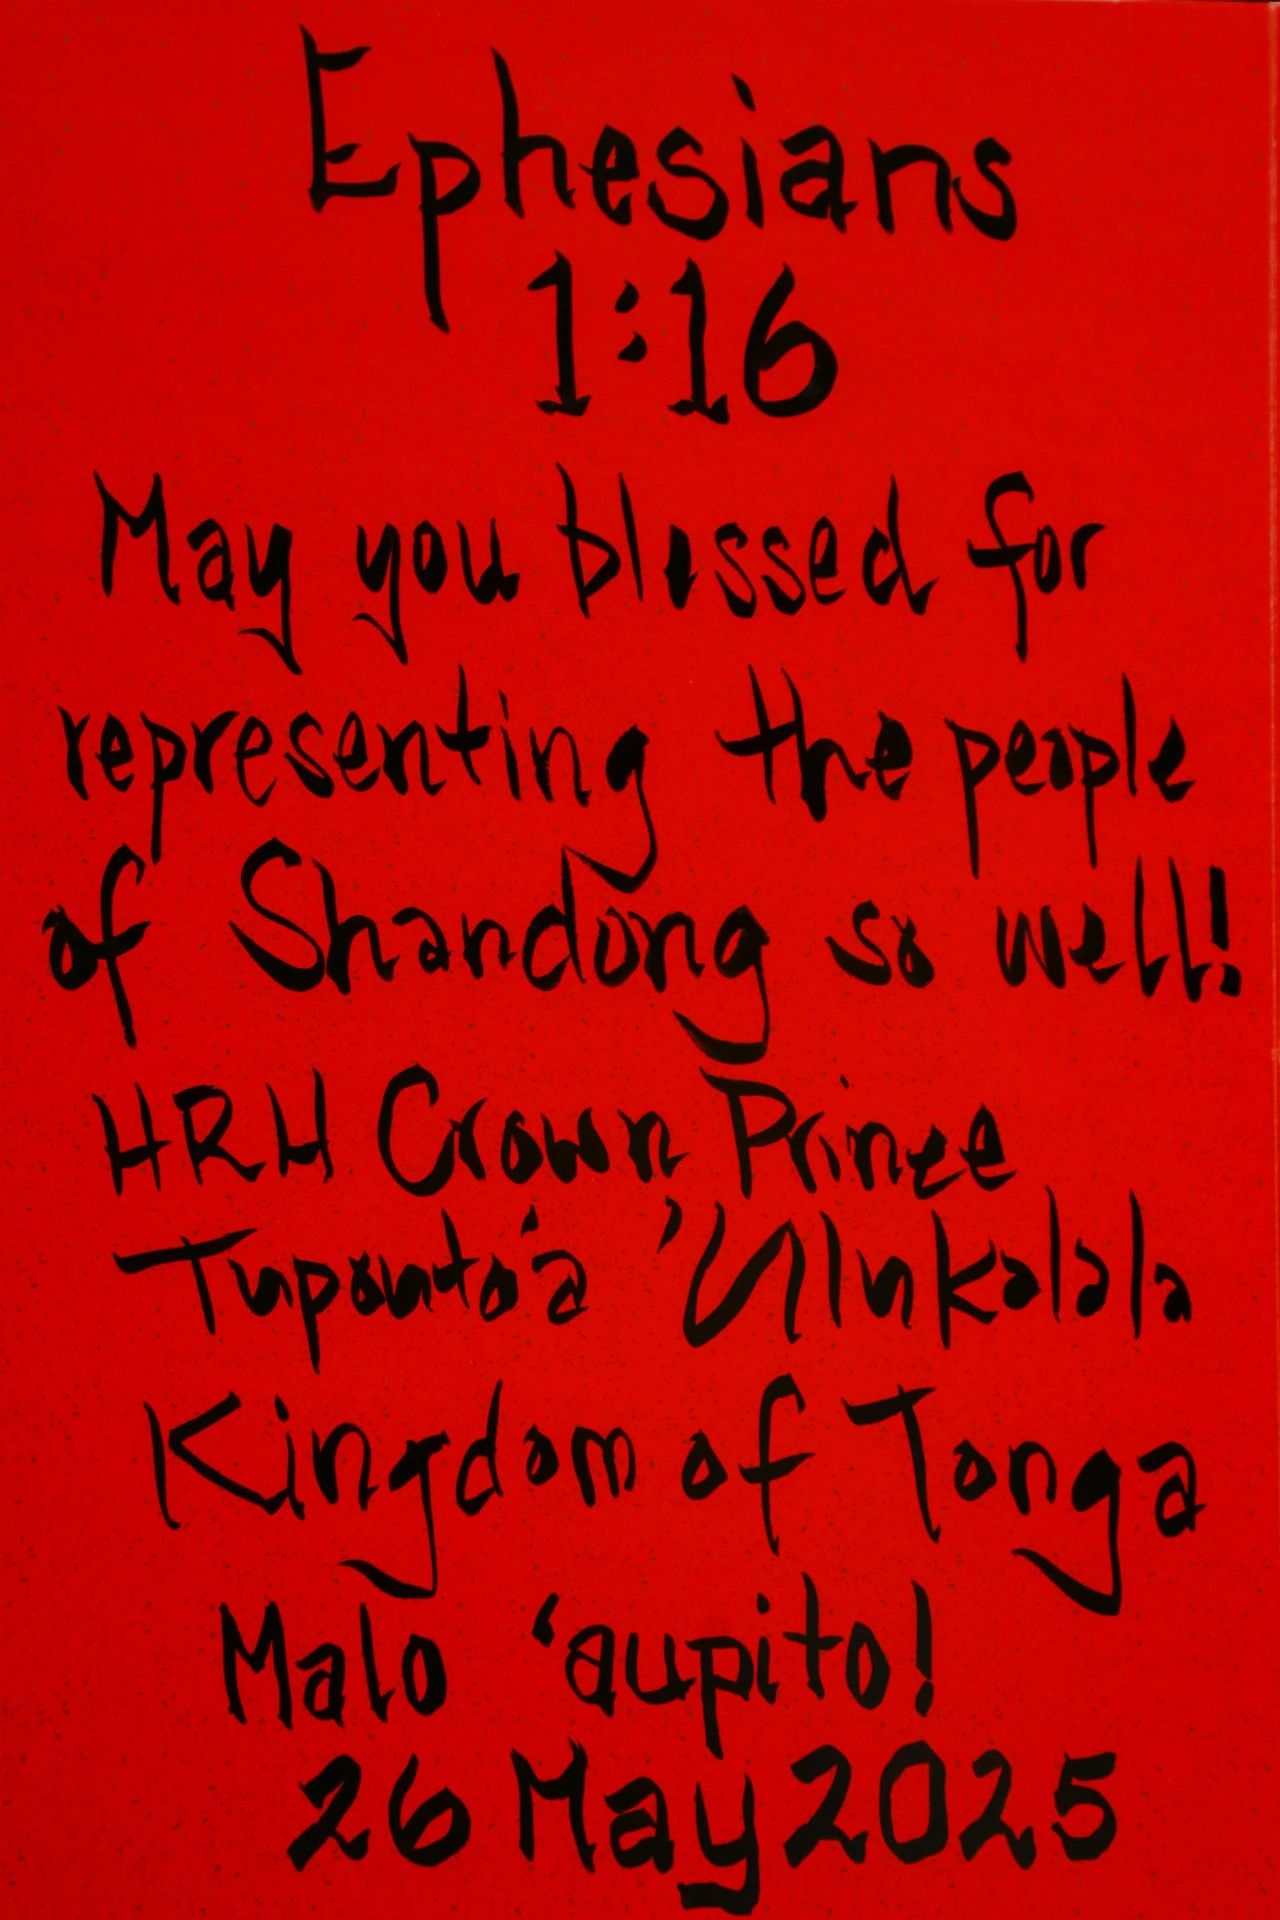 Ephesians
1:16
May you blessed for
representing the people
of Shandong so well!
HRH Crown Prince
Tupouto'a 'Ulukalala
Kingdom of Tonga
Malo 'aupito!
26 May 2025